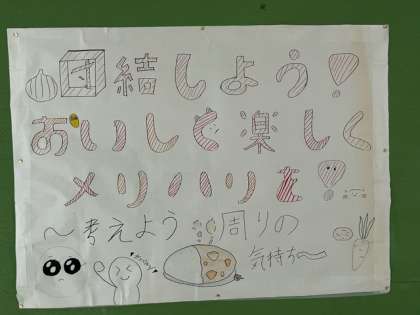 団結しよう！
おいしく楽しく
メリハリを！
〜考えよう周りの
気持ち〜